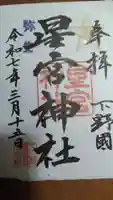 奉拝
下野國
星宮神社
令和七年三月十五日